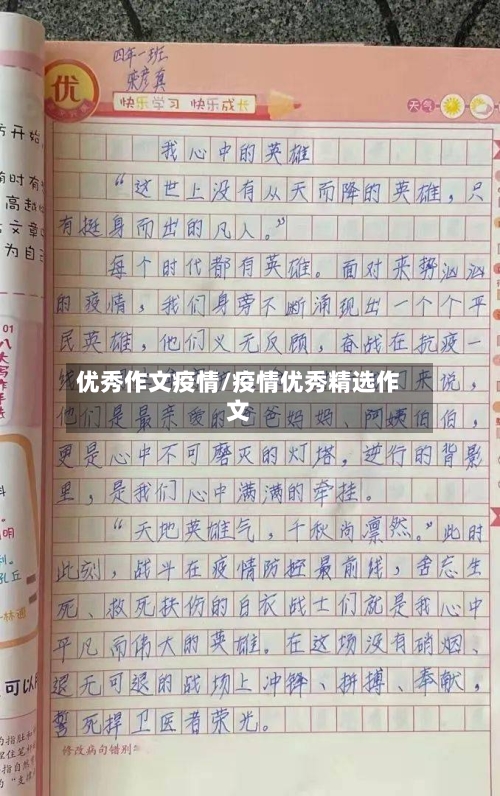 四年一班
优
快乐学习 快乐成长
天气
我心中的英雄
“这世上没有从天而降的英雄,只
有挺身而出的凡人。”
每个时代都有英雄。面对来势汹汹
的疫情,我们身旁不断涌现出一个个平
民英雄,他们义无反顾,奋战在抗疫一
优秀作文疫情/疫情优秀精选作
文
来说,
他们是最亲爱的爸爸妈妈、阿姨伯伯,
更是心中不可磨灭的灯塔,逆行的背影
里,是我们心中满满的牵挂。
“天地英雄气,千秋尚凛然。”此时
此刻,战斗在疫情防控最前线,舍忘生
死、救死扶伤的白衣战士们就是我心中
平凡而伟大的英雄。在这场没有硝烟、
退无可退的战场上冲锋、拼搏、奉献,
誓死捍卫医者荣光。
修改病句错别